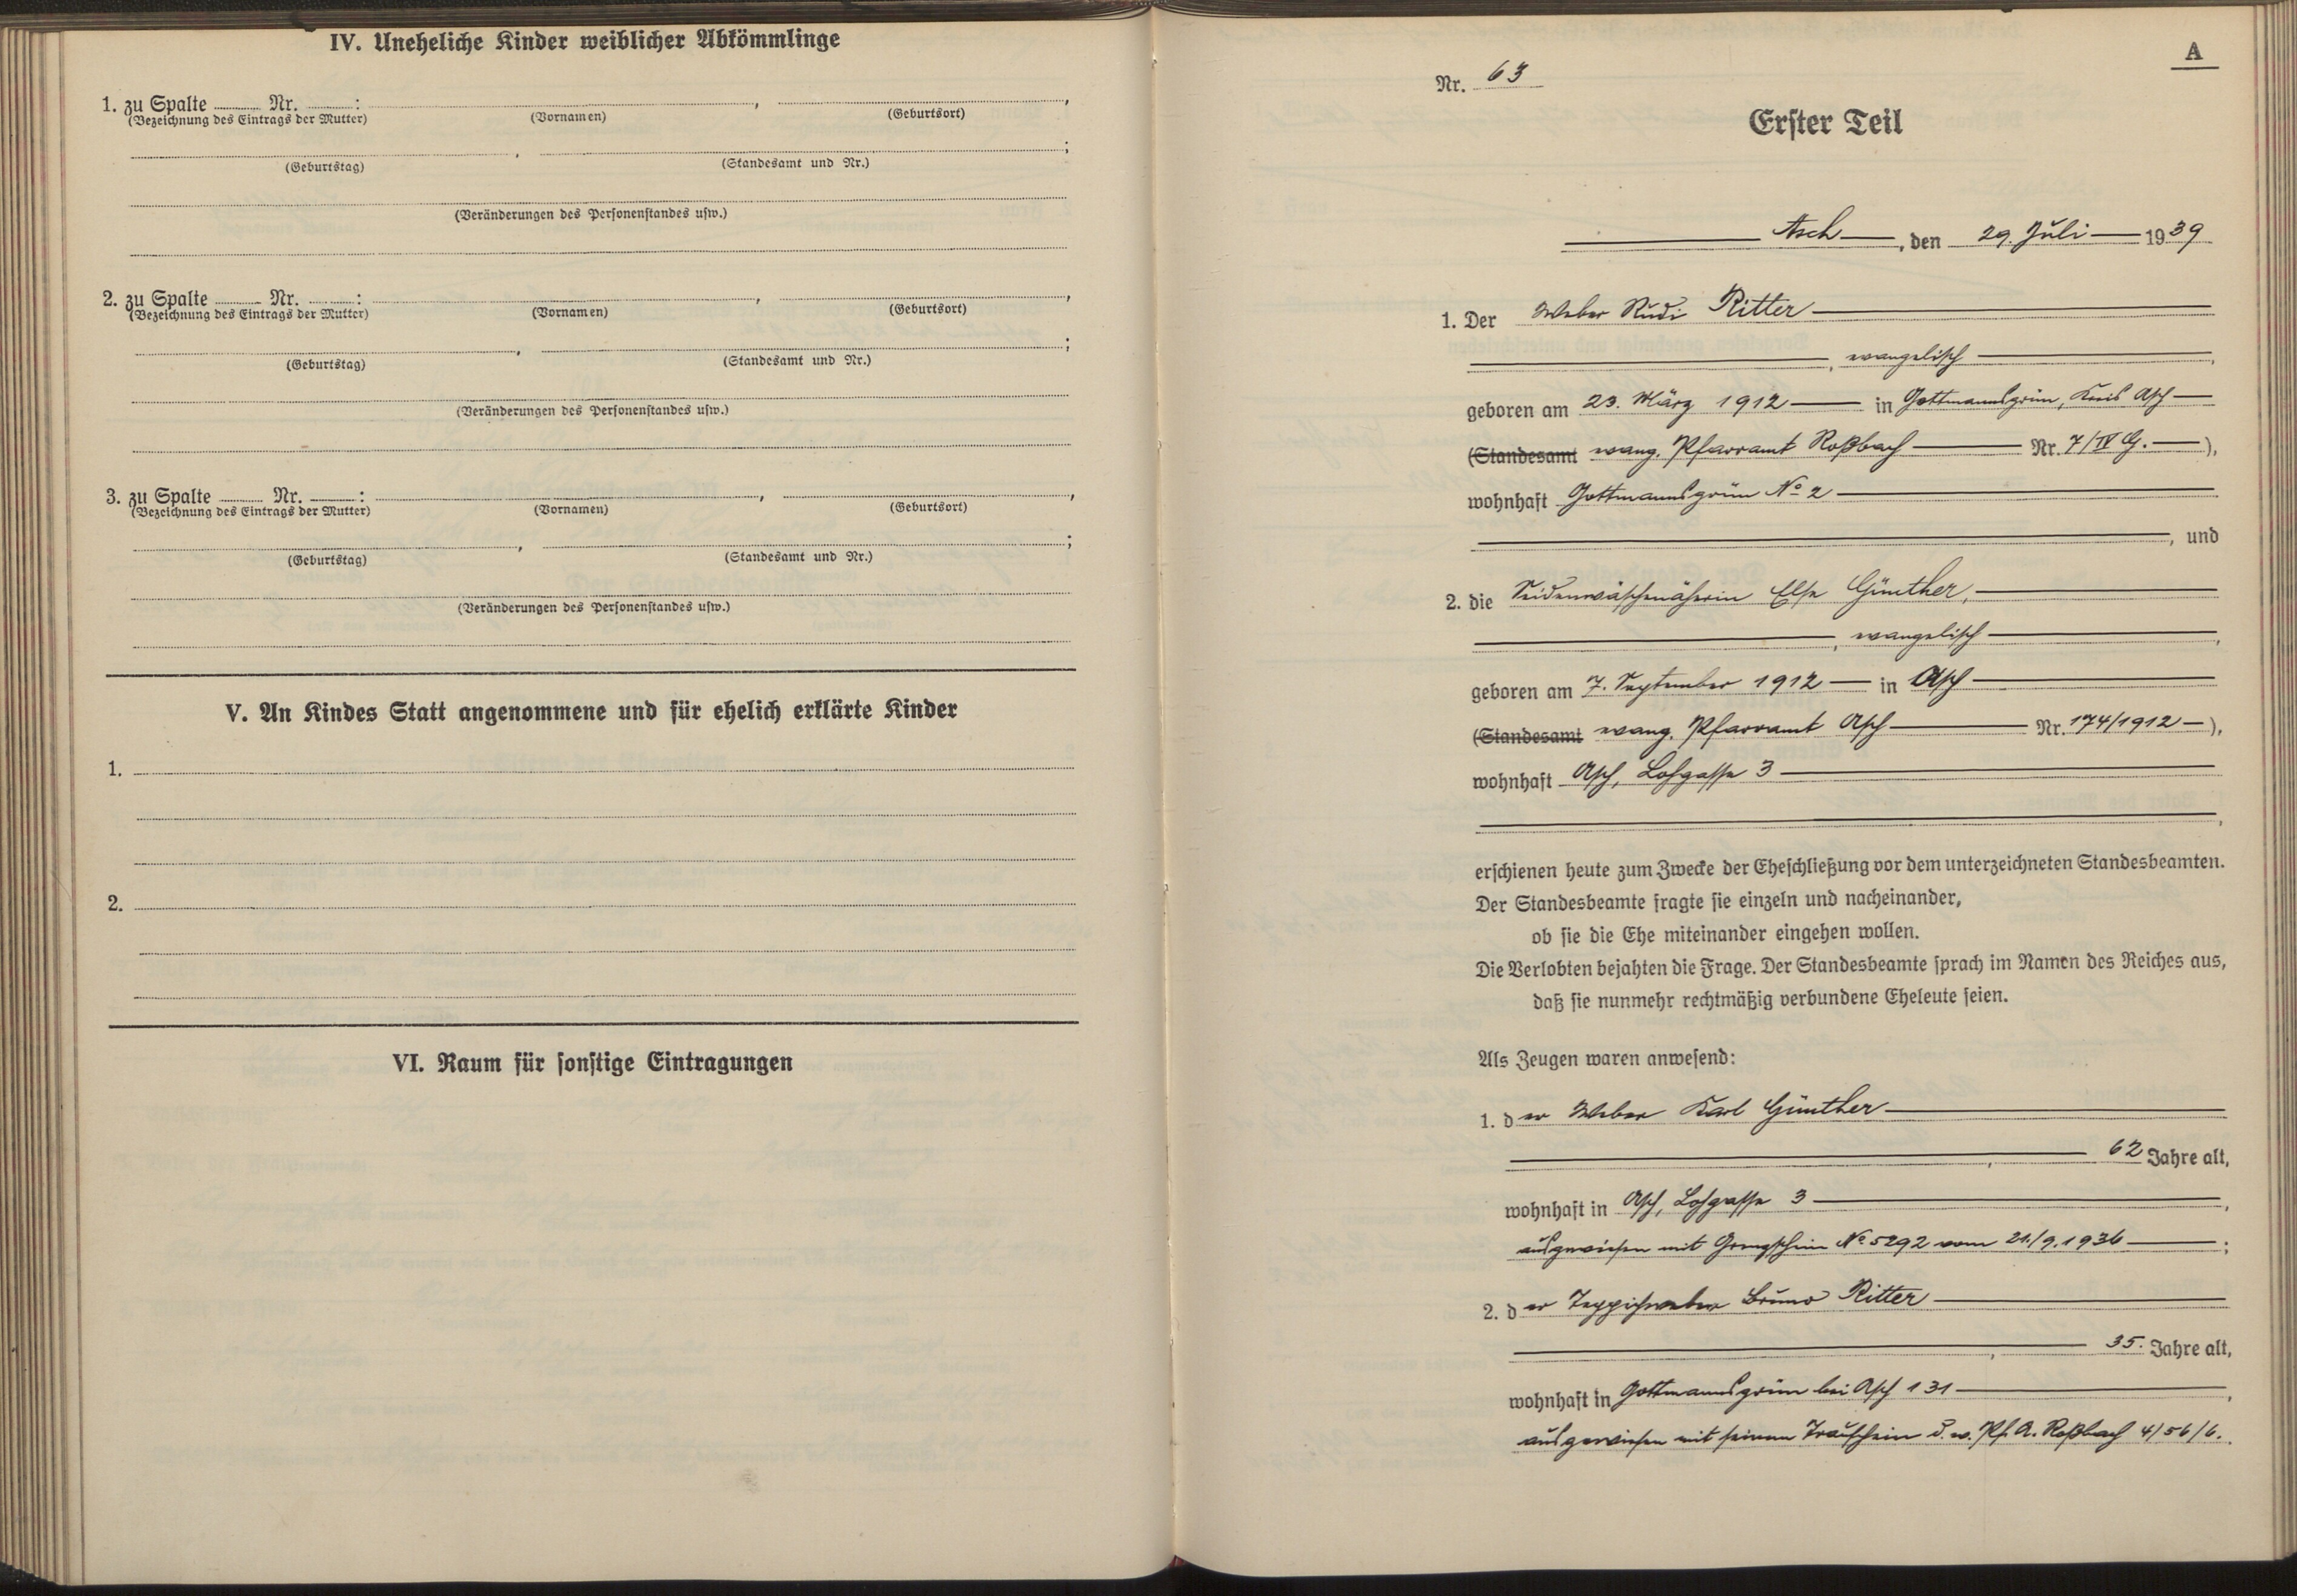 IV. Uneheliche Kinder weiblicher Abkömmlinge
1. zu Spalte Nr. : , ,
(Bezeichnung des Eintrags der Mutter) (Vornamen) (Geburtsort)
, ;
(Geburtstag) (Standesamt und Nr.)
(Veränderungen des Personenstandes usw.)
2. zu Spalte Nr. : , ,
(Bezeichnung des Eintrags der Mutter) (Vornamen) (Geburtsort)
, ;
(Geburtstag) (Standesamt und Nr.)
(Veränderungen des Personenstandes usw.)
3. zu Spalte Nr. : , ,
(Bezeichnung des Eintrags der Mutter) (Vornamen) (Geburtsort)
, ;
(Geburtstag) (Standesamt und Nr.)
(Veränderungen des Personenstandes usw.)
V. An Kindes Statt angenommene und für ehelich erklärte Kinder
1.
2.
VI. Raum für sonstige Eintragungen
A
Nr. 63
Erster Teil
Asch, den 29. Juli 1939
1. Der Weber Rudi Ritter
, evangelisch,
geboren am 23. März 1912 in Gottmannsgrün, Kreis Asch
(Standesamt evang. Pfarramt Roßbach Nr. 7/IV G.),
wohnhaft Gottmannsgrün No 2
, und
2. die Seidenwäschenäherin Else Günther,
, evangelisch,
geboren am 7. September 1912 in Asch
(Standesamt evang. Pfarramt Asch Nr. 174/1912),
wohnhaft Asch, Lohgasse 3
,
erschienen heute zum Zwecke der Eheschließung vor dem unterzeichneten Standesbeamten.
Der Standesbeamte fragte sie einzeln und nacheinander,
ob sie die Ehe miteinander eingehen wollen.
Die Verlobten bejahten die Frage. Der Standesbeamte sprach im Namen des Reiches aus,
daß sie nunmehr rechtmäßig verbundene Eheleute seien.
Als Zeugen waren anwesend:
1. der Weber Karl Günther
, 62 Jahre alt,
wohnhaft in Asch, Lohgasse 3,
ausgewiesen mit Grenzschein No 5292 vom 21./9.1936;
2. der Teppichweber Bruno Ritter
, 35. Jahre alt,
wohnhaft in Gottmannsgrün bei Asch 131,
ausgewiesen mit seinem Trauschein d. e. Pf. A. Roßbach 4/56/6.